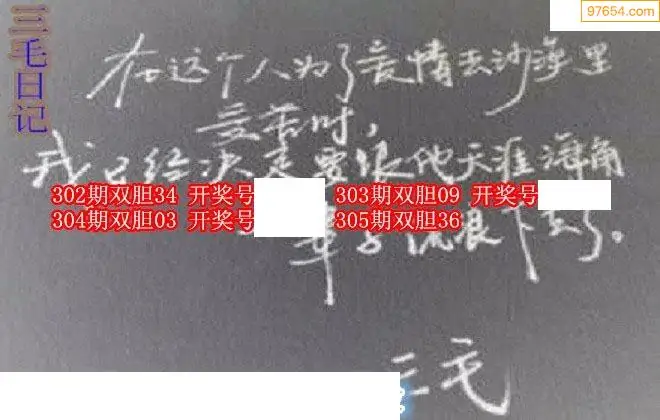 97654.com
三毛日记
在这个人为了爱情去沙漠里
受苦时,
我已经决定要跟他天涯海角
302期双胆34 开奖号 303期双胆09 开奖号
304期双胆03 开奖号 305期双胆36
下去了。
三毛